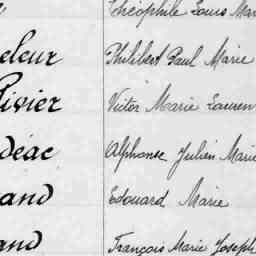 Théophile Louis Mar
eleur Philibert Paul Marie
Rivier Victor Marie Lauren
deac Alphonse Julien Marie
and Edouard Marie
and François Marie Joseph